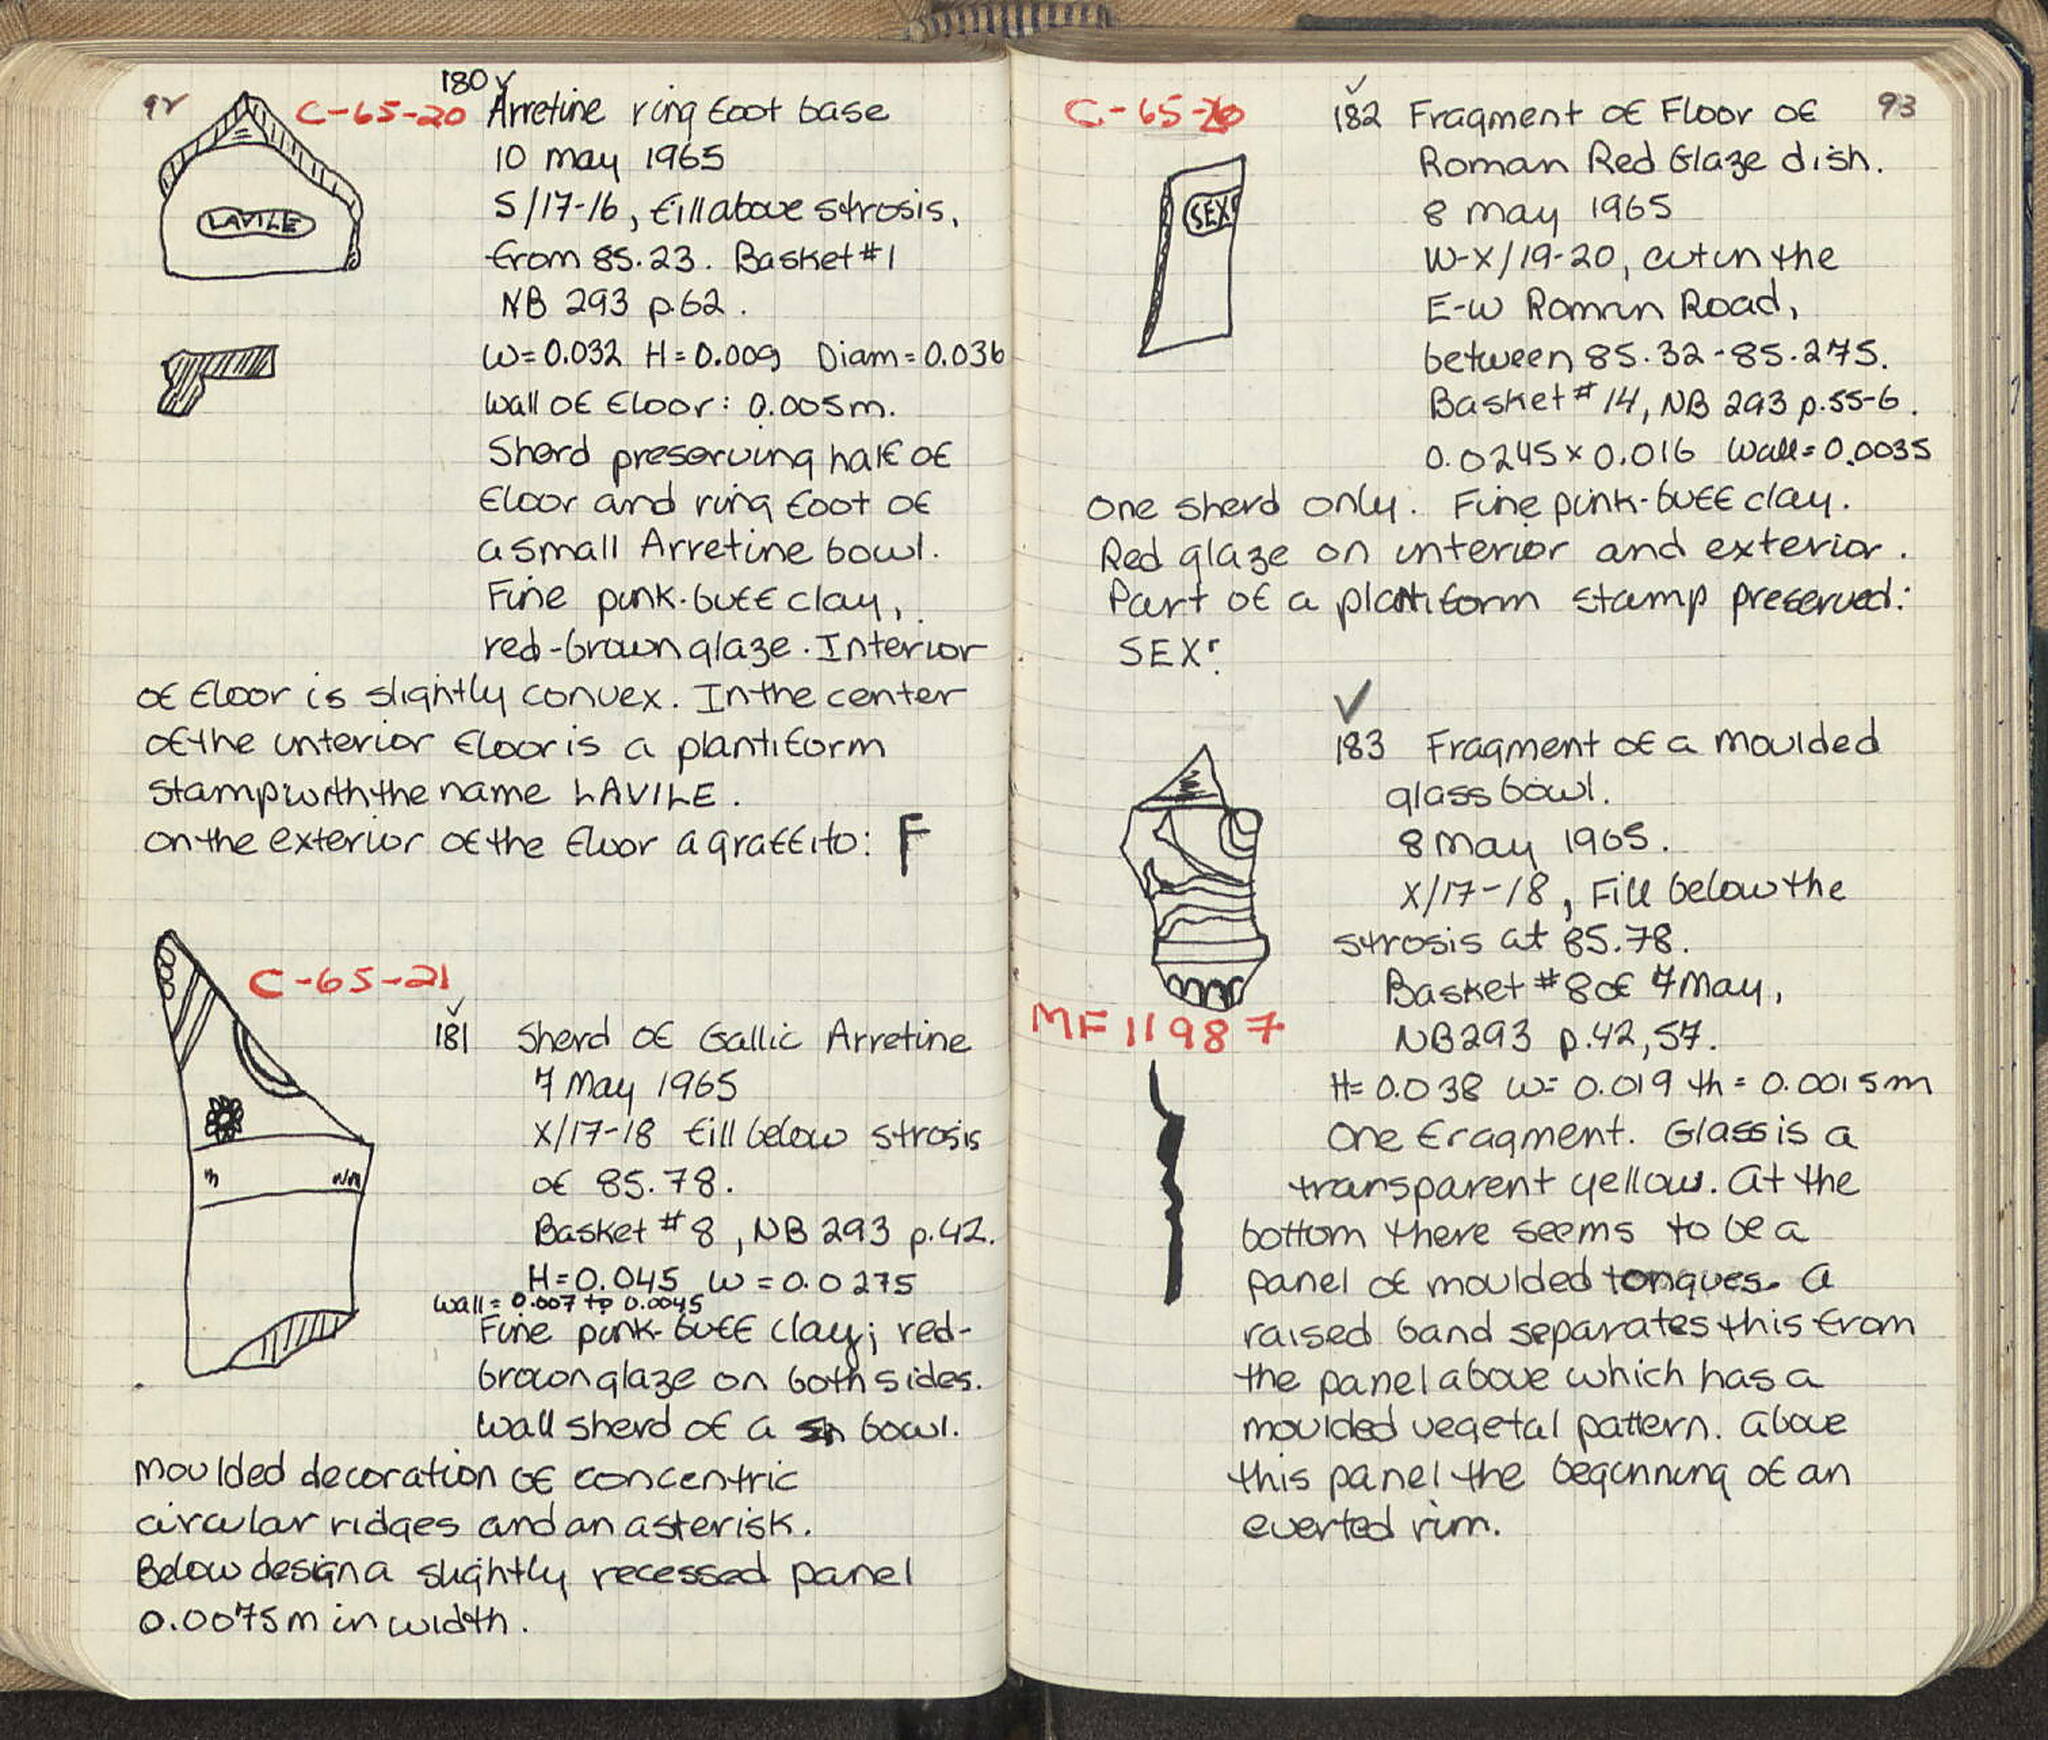 92
180 ✓
C-65-20 Arretine ring foot base
10 May 1965
S/17-16, fill above strosis,
from 85.23. Basket #1
NB 293 p.62.
W=0.032 H=0.009 Diam=0.036
Wall of floor: 0.005m.
Sherd preserving half of
floor and ring foot of
a small Arretine bowl.
Fine pink-buff clay,
red-brown glaze. Interior
of floor is slightly convex. In the center
of the interior floor is a plantiform
stamp with the name LAVILE.
On the exterior of the floor a graffito: F
LAVILE
C-65-21
✓
181 Sherd of Gallic Arretine
7 May 1965
X/17-18 fill below strosis
of 85.78.
Basket #8, NB 293 p.42.
H=0.045 W=0.0275
Wall = 0.007 to 0.0045
Fine pink-buff clay; red-
brown glaze on both sides.
Wall sherd of a bowl.
Moulded decoration of concentric
circular ridges and an asterisk.
Below design a slightly recessed panel
0.0075m in width.
93
✓
C-65-
182 Fragment of Floor of
Roman Red Glaze dish.
8 May 1965
W-X/19-20, cut in the
E-W Roman Road,
between 85.32-85.275.
Basket #14, NB 293 p.55-6.
0.0245 x 0.016 Wall=0.0035
One sherd only. Fine pink-buff clay.
Red glaze on interior and exterior.
Part of a plantiform stamp preserved:
SEX
SEX
✓
183 Fragment of a moulded
glass bowl.
8 May 1965.
X/17-18, Fill below the
strosis at 85.78.
Basket #8 of 7 May,
NB 293 p.42, 57.
MF 11987
H=0.038 W=0.019 th=0.0015m
One fragment. Glass is a
transparent yellow. At the
bottom there seems to be a
panel of moulded tongues. A
raised band separates this from
the panel above which has a
moulded vegetal pattern. Above
this panel the beginning of an
everted rim.